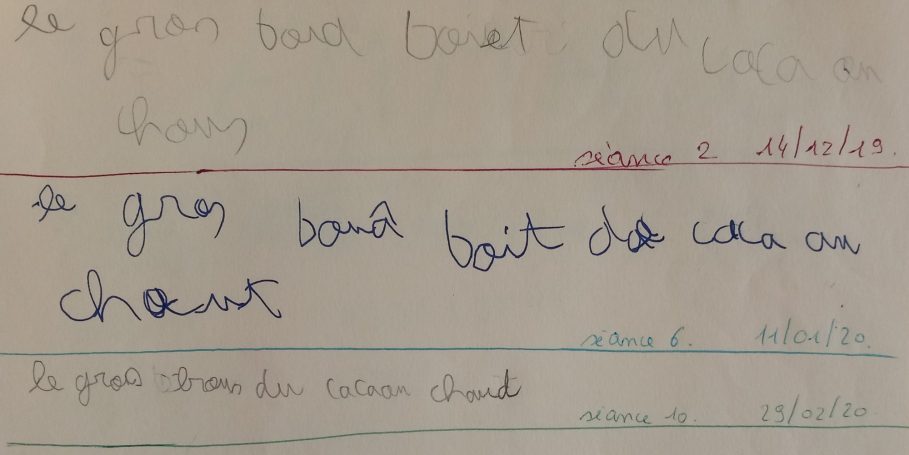 le gros boud boiet du caca au
chaus
séance 2 14/12/19.
le gros bouâ boit de caca au
chaut
séance 6. 11/01/20.
le gros du cacaau chaud
séance 10. 29/02/20